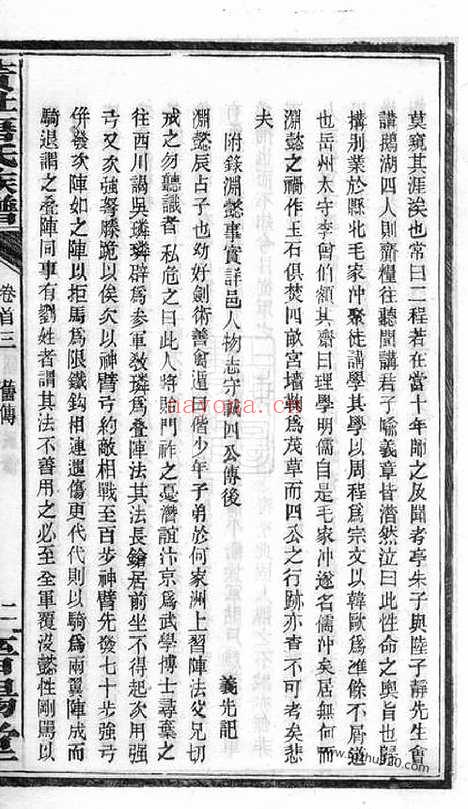 莫窺其涯涘也常曰二程若在當十年師之及聞考亭朱子與陸子靜先生會
講鵝湖四人則齎糧往聽聞講君子喻義章皆潸然泣曰此性命之奧旨也歸
搆別業於縣北毛家冲聚徒講學其學以周程為宗文以韓歐為準餘不屑道
也岳州太守李曾伯額其齋曰理學明儒自是毛家冲遂名儒冲矣居無何而
淵懿之禍作玉石俱焚四畝宮墻鞠為茂草而四公之行跡亦杳不可考矣悲
夫
義先記
附錄淵懿事實詳邑人物志守誠四公傳後
淵懿辰占子也幼好劍術善禽遁日偕少年子弟於何家洲上習陣法父兄切
戒之勿聽識者私危之曰此人將貽門祚之憂潛詣汴京為武學博士尋棄之
往西川謁吳璘璘辟為參軍教璘為叠陣法其法長鎗居前坐不得起次用强
弓又次強弩膝跪以俟次以神臂弓約敵相戰至百步神臂先發七十步強弓
併發次陣如之陣以拒馬為限鐵鈎相連遇傷更代代則以騎為兩翼陣成而
騎退謂之叠陣同事有劉姓者謂其法不善用之必至全軍覆沒懿性剛駡以
黃上 氏族譜
卷首三
舊傳
二
nayona.cn
www.nazhuhao.com